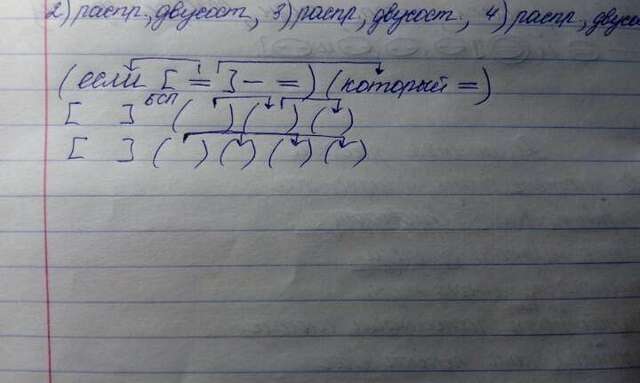 2) распр., двусост, 3) распр, двусост., 4) распр, двусо
(если [ = ] — = ) (который = )
[ ] БСП ( ) ( ) ( )
[ ] ( ) ( ) ( ) ( )